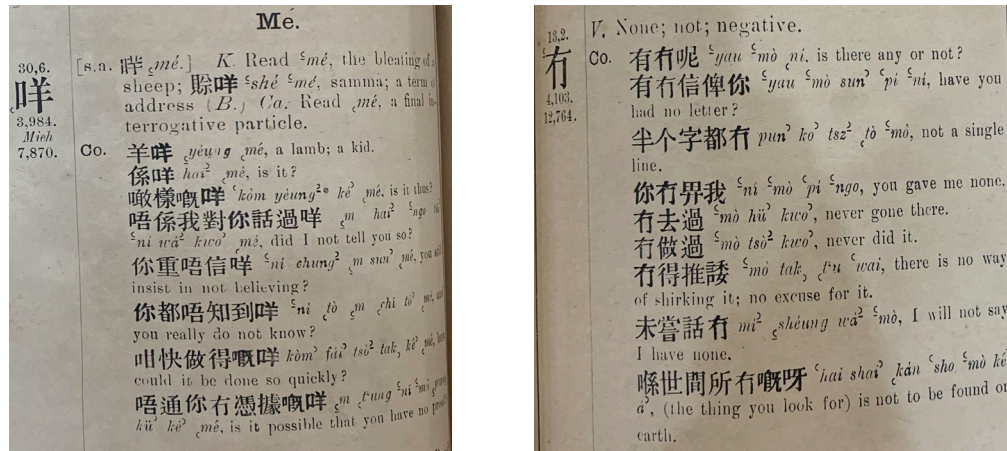 Mé.
30,6.
咩
3,984.
Mieh
7,870.
[s.a. 哶 ˛mé.] K. Read ʿmé, the bleating of a
sheep; 賒咩 ʿshé ʿmé, samma; a term of
address (B.) Ca. Read ˛mé, a final in-
terrogative particle.
Co. 羊咩 ˛yéung ˛mé, a lamb; a kid.
係咩 hai² ˛mé, is it?
噉樣嘅咩 ʿkòm yéung²* kéʾ ˛mé, is it thus?
唔係我對你話過咩 ˛m hai² ʿngo
ʿni wá² kwoʾ ˛mé, did I not tell you so?
你重唔信咩 ʿni chung² ˛m sunʾ ˛mé, you still
insist in not believing?
你都唔知到咩 ʿni ˛tò ˛m ˛chi tòʾ ˛mé,
you really do not know?
咁快做得嘅咩 kòmʾ fáiʾ tsò² tak˛ kéʾ ˛mé,
could it be done so quickly?
唔通你冇憑據嘅咩 ˛m ˛tʿung ʿni ʿmò
küʾ kéʾ ˛mé, is it possible that you have no
13,2.
冇
4,103.
12,764.
V. None; not; negative.
Co. 有冇呢 ʿyau ʿmò ˛ni, is there any or not?
有冇信俾你 ʿyau ʿmò sunʾ ʿpi ʿni, have you
had no letter?
半个字都冇 punʾ koʾ tsz² ˛tò ʿmò, not a single
line.
你冇畀我 ʿni ʿmò ʿpi ʿngo, you gave me none.
冇去過 ʿmò hüʾ kwoʾ, never gone there.
冇做過 ʿmò tsò² kwoʾ, never did it.
冇得推諉 ʿmò tak˛ ˛tʿu ʿwai, there is no way
of shirking it; no excuse for it.
未嘗話冇 mi² ˛shéung wá² ʿmò, I will not say
I have none.
喺世間所冇嘅呀 ʿhai shaiʾ ˛kán ʿsho ʿmò ké
áʾ, (the thing you look for) is not to be found on
earth.